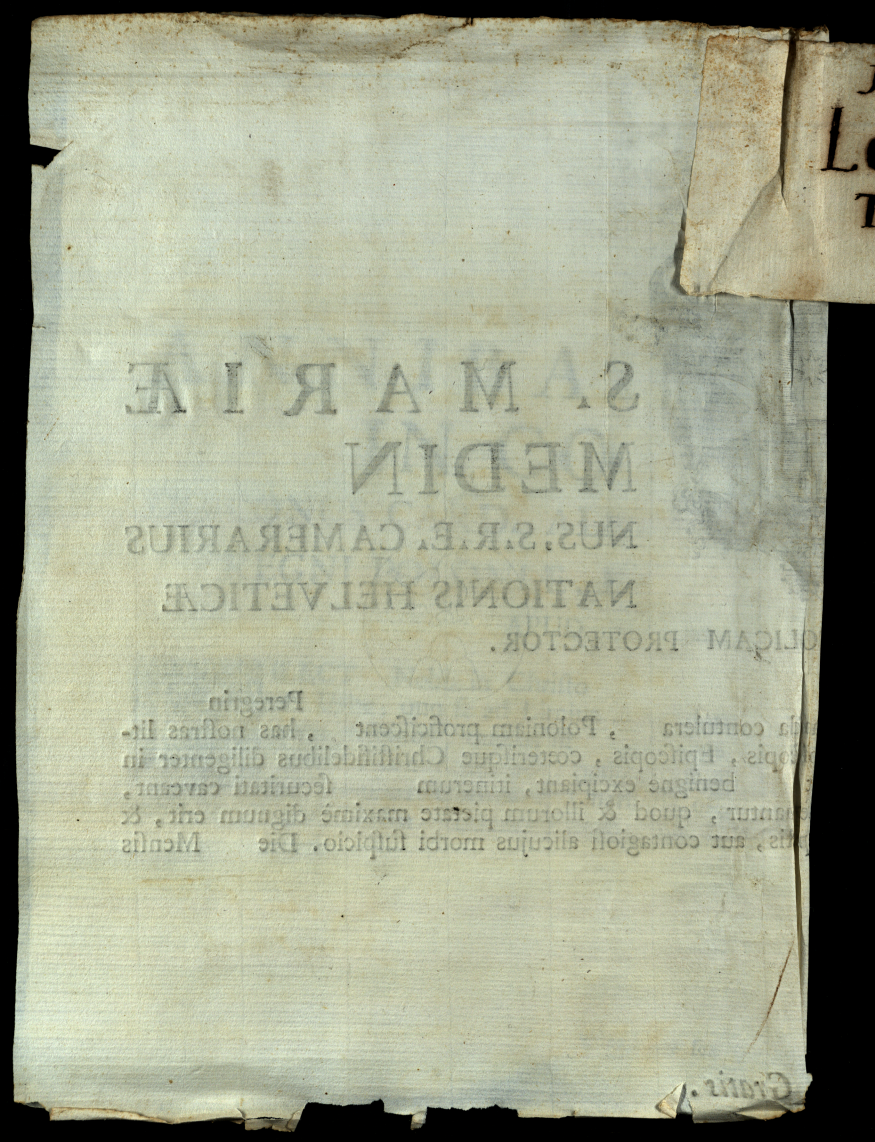 Lo
S. MARIÆ
MEDIN
NUS, S.R.E. CAMERARIUS
NATIONIS HELVETICÆ
OLICAM PROTECTOR.
Peregrin
contulera , Poloniam proficiſcent , has noſtras lit-
, Epiſcopis, cœteriſque Chriſtifidelibus diligenter in
benignè excipiant, itinerum ſecuritati caveant,
, quod & illorum pietate maximè dignum erit, &
, aut contagioſi alicujus morbi ſuſpicio. Die Menſis
Gratis.